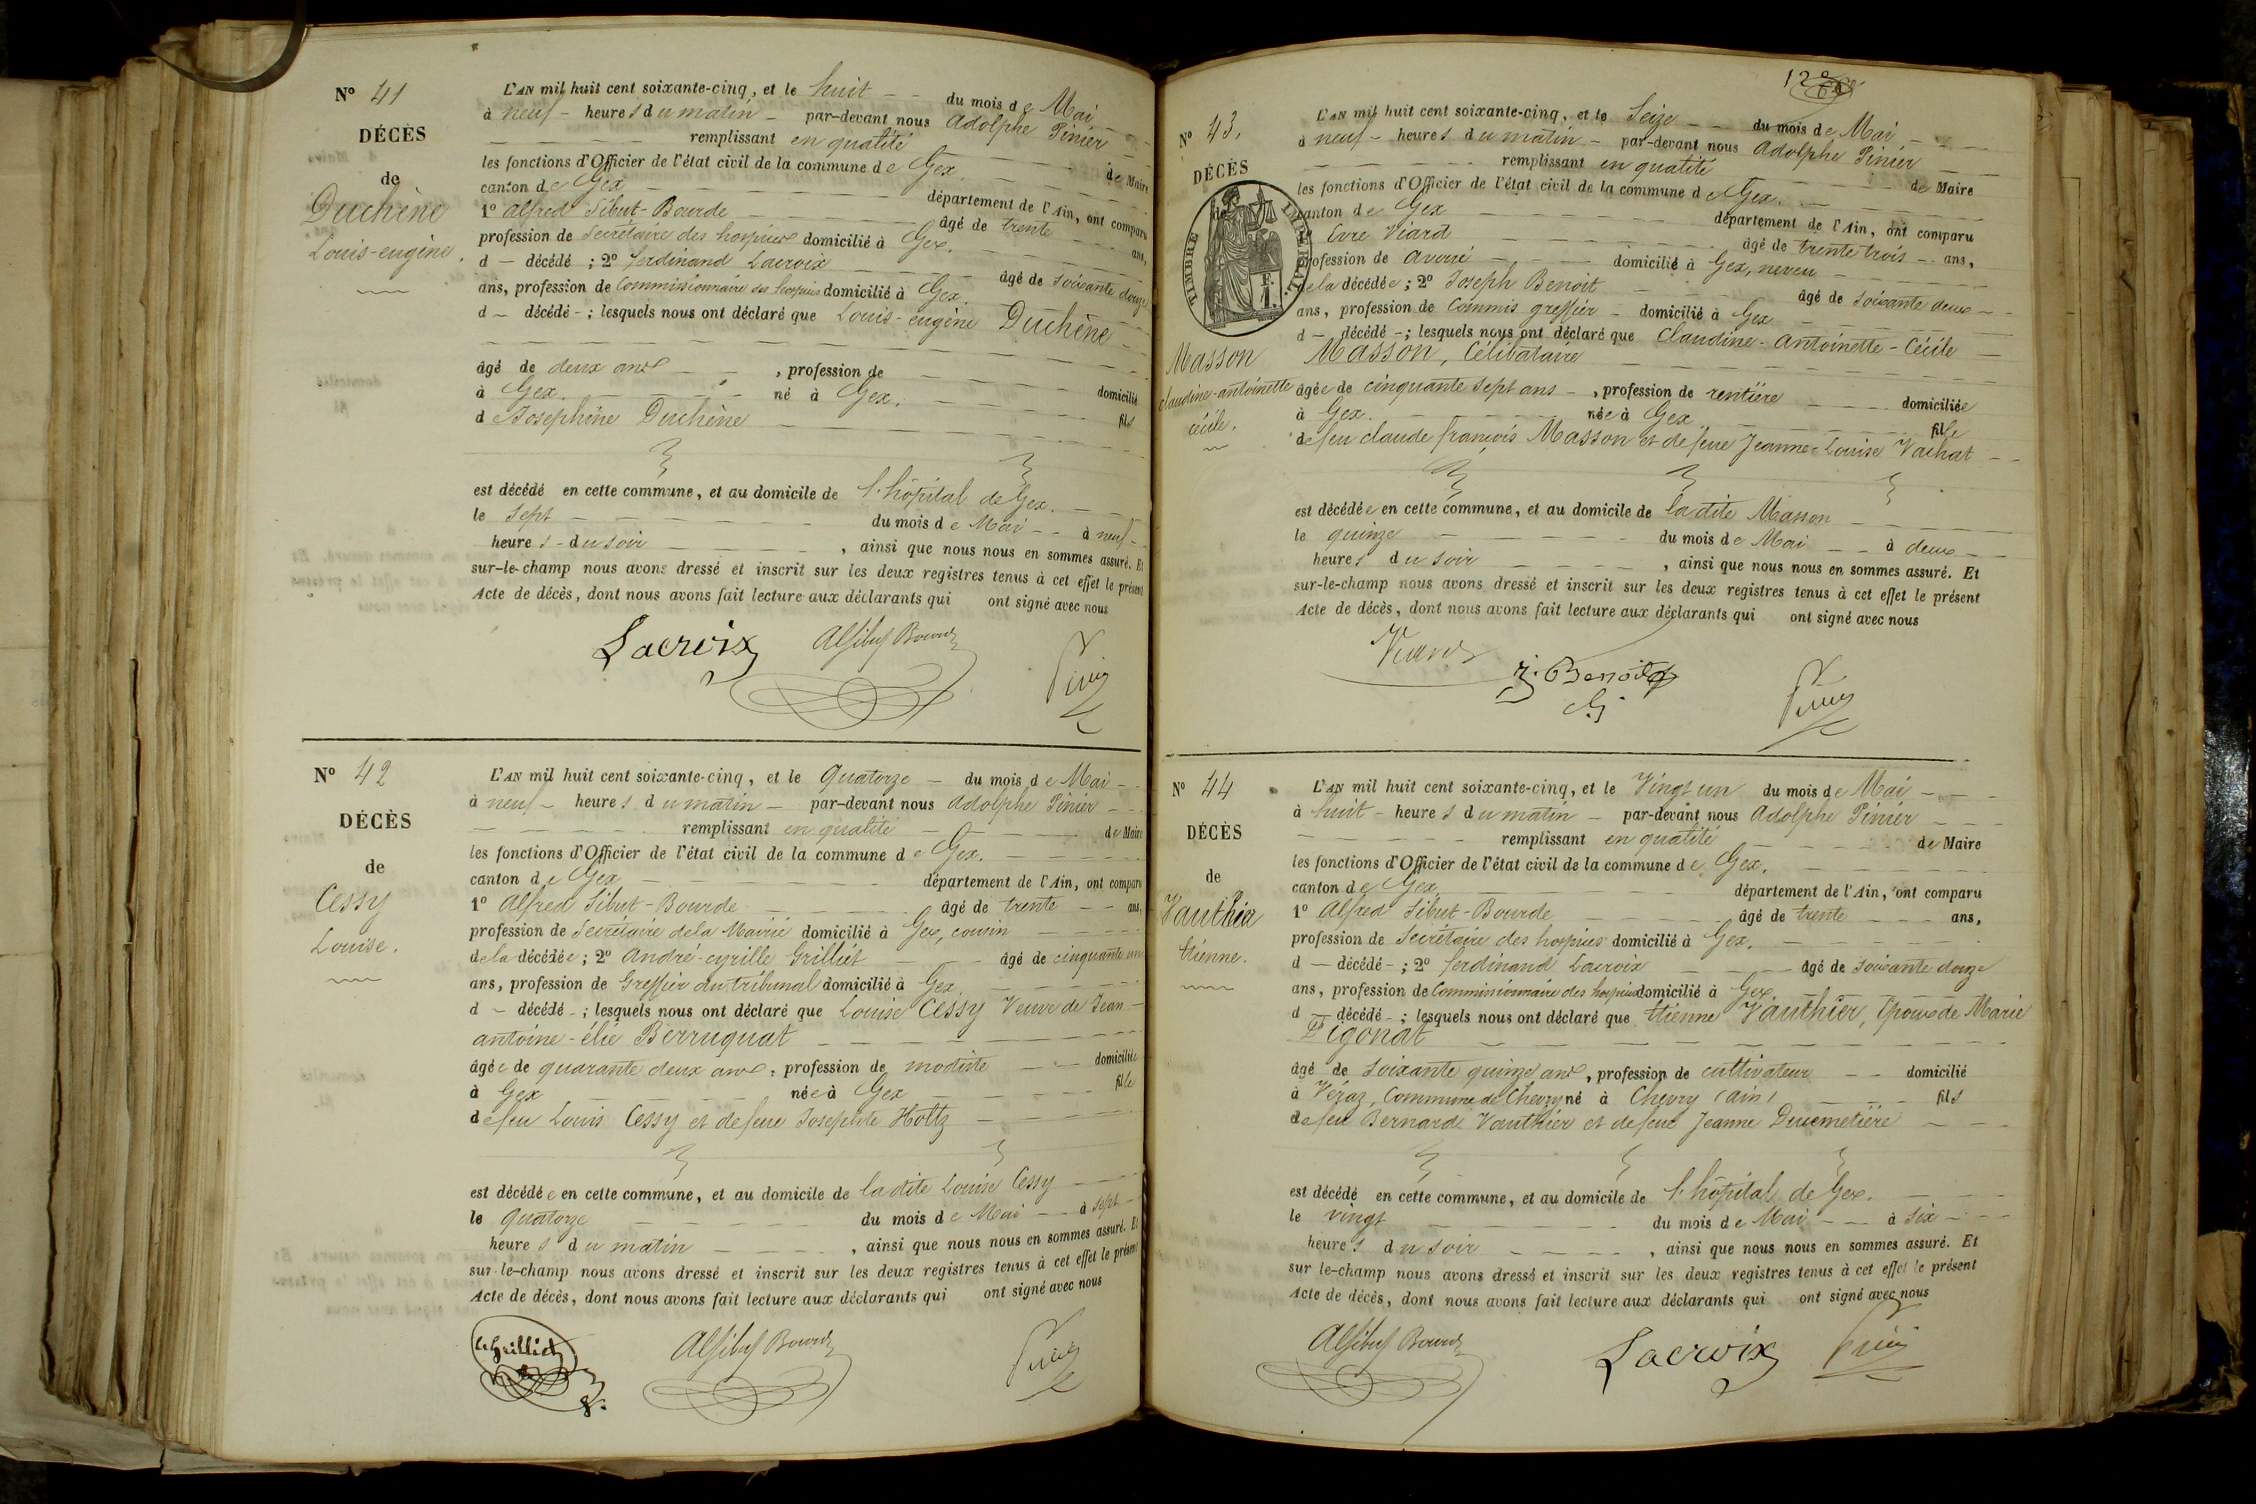 Nº 41
DÉCÈS
de
Duchêne
Louis-eugène.
L'AN mil huit cent soixante-cinq, et le huit du mois de Mai
à neuf heures du matin par-devant nous Adolphe Pinier
remplissant en qualité de Maire
les fonctions d'Officier de l'état civil de la commune de Gex
canton de Gex département de l'Ain, ont comparu
1º Alfred Sibut-Bourde âgé de trente ans,
profession de Secrétaire des hospices domicilié à Gex.
d décédé ; 2º ferdinand Lacroix âgé de soixante douze
ans, profession de Commissionnaire des hospices domicilié à Gex.
d décédé ; lesquels nous ont déclaré que Louis-eugène Duchêne
âgé de deux ans , profession de domicilié
à Gex. né à Gex. fils
de Josephine Duchêne
est décédé en cette commune, et au domicile de l'hôpital de Gex.
le sept du mois de Mai à neuf
heures du soir , ainsi que nous nous en sommes assuré. Et
sur-le-champ nous avons dressé et inscrit sur les deux registres tenus à cet effet le présent
Acte de décès, dont nous avons fait lecture aux déclarants qui ont signé avec nous
Lacroix Al Sibut Bourde Pinier
Nº 42
DÉCÈS
de
Cessy
Louise.
L'AN mil huit cent soixante-cinq, et le Quatorze du mois de Mai
à neuf heures du matin par-devant nous Adolphe Pinier
remplissant en qualité de Maire
les fonctions d'Officier de l'état civil de la commune de Gex.
canton de Gex département de l'Ain, ont comparu
1º Alfred Sibut-Bourde âgé de trente ans,
profession de Secrétaire de la Mairie domicilié à Gex, cousin
de la décédée ; 2º André-cyrille Grilliet âgé de cinquante un
ans, profession de Greffier du tribunal domicilié à Gex
d décédé ; lesquels nous ont déclaré que Louise Cessy Veuve de Jean
antoine-élie Berruquat
âgée de quarante deux ans, profession de modiste domiciliée
à Gex née à Gex fille
de feu Louis Cessy et de feue Josephte Holtz
est décédée en cette commune, et au domicile de la dite Louise Cessy
le Quatorze du mois de Mai à sept
heures du matin , ainsi que nous nous en sommes assuré. Et
sur-le-champ nous avons dressé et inscrit sur les deux registres tenus à cet effet le présent
Acte de décès, dont nous avons fait lecture aux déclarants qui ont signé avec nous
Grilliet Al Sibut Bourde Pinier
12
Nº 43.
DÉCÈS
de
TIMBRE IMPÉRIAL
1 F.
Masson
claudine-antoinette
cécile.
L'AN mil huit cent soixante-cinq, et le Seize du mois de Mai
à neuf heures du matin par-devant nous Adolphe Pinier
remplissant en qualité de Maire
les fonctions d'Officier de l'état civil de la commune de Gex.
canton de Gex département de l'Ain, ont comparu
Evre Viard âgé de trente trois ans,
profession de avoué domicilié à Gex, neveu
de la décédée ; 2º Joseph Benoit âgé de soixante deux
ans, profession de Commis greffier domicilié à Gex
d décédé ; lesquels nous ont déclaré que Claudine-Antoinette-Cécile
Masson, Célibataire
âgée de cinquante sept ans , profession de rentière domiciliée
à Gex. née à Gex fille
de feu claude françois Masson et de feue Jeanne-Louise Vachat
est décédée en cette commune, et au domicile de la dite Masson
le quinze du mois de Mai à deux
heures du soir , ainsi que nous nous en sommes assuré. Et
sur-le-champ nous avons dressé et inscrit sur les deux registres tenus à cet effet le présent
Acte de décès, dont nous avons fait lecture aux déclarants qui ont signé avec nous
Viard J. Benoit Pinier
Nº 44
DÉCÈS
de
Vauthier
Etienne.
L'AN mil huit cent soixante-cinq, et le Vingt un du mois de Mai
à huit heures du matin par-devant nous Adolphe Pinier
remplissant en qualité de Maire
les fonctions d'Officier de l'état civil de la commune de Gex.
canton de Gex département de l'Ain, ont comparu
1º Alfred Sibut-Bourde âgé de trente ans,
profession de Secrétaire des hospices domicilié à Gex.
d décédé ; 2º ferdinand Lacroix âgé de soixante douze
ans, profession de Commissionnaire des hospices domicilié à Gex
d décédé ; lesquels nous ont déclaré que Etienne Vauthier, Epoux de Marie
Pigonat
âgé de soixante quinze ans, profession de cultivateur domicilié
à Véraz, Commune de Chevry né à Chevry (ain) fils
de feu Bernard Vauthier et de feue Jeanne Ducemetière
est décédé en cette commune, et au domicile de l'hôpital de Gex.
le vingt du mois de Mai à six
heures du soir , ainsi que nous nous en sommes assuré. Et
sur le-champ nous avons dressé et inscrit sur les deux registres tenus à cet effet le présent
Acte de décès, dont nous avons fait lecture aux déclarants qui ont signé avec nous
Al Sibut Bourde Lacroix Pinier